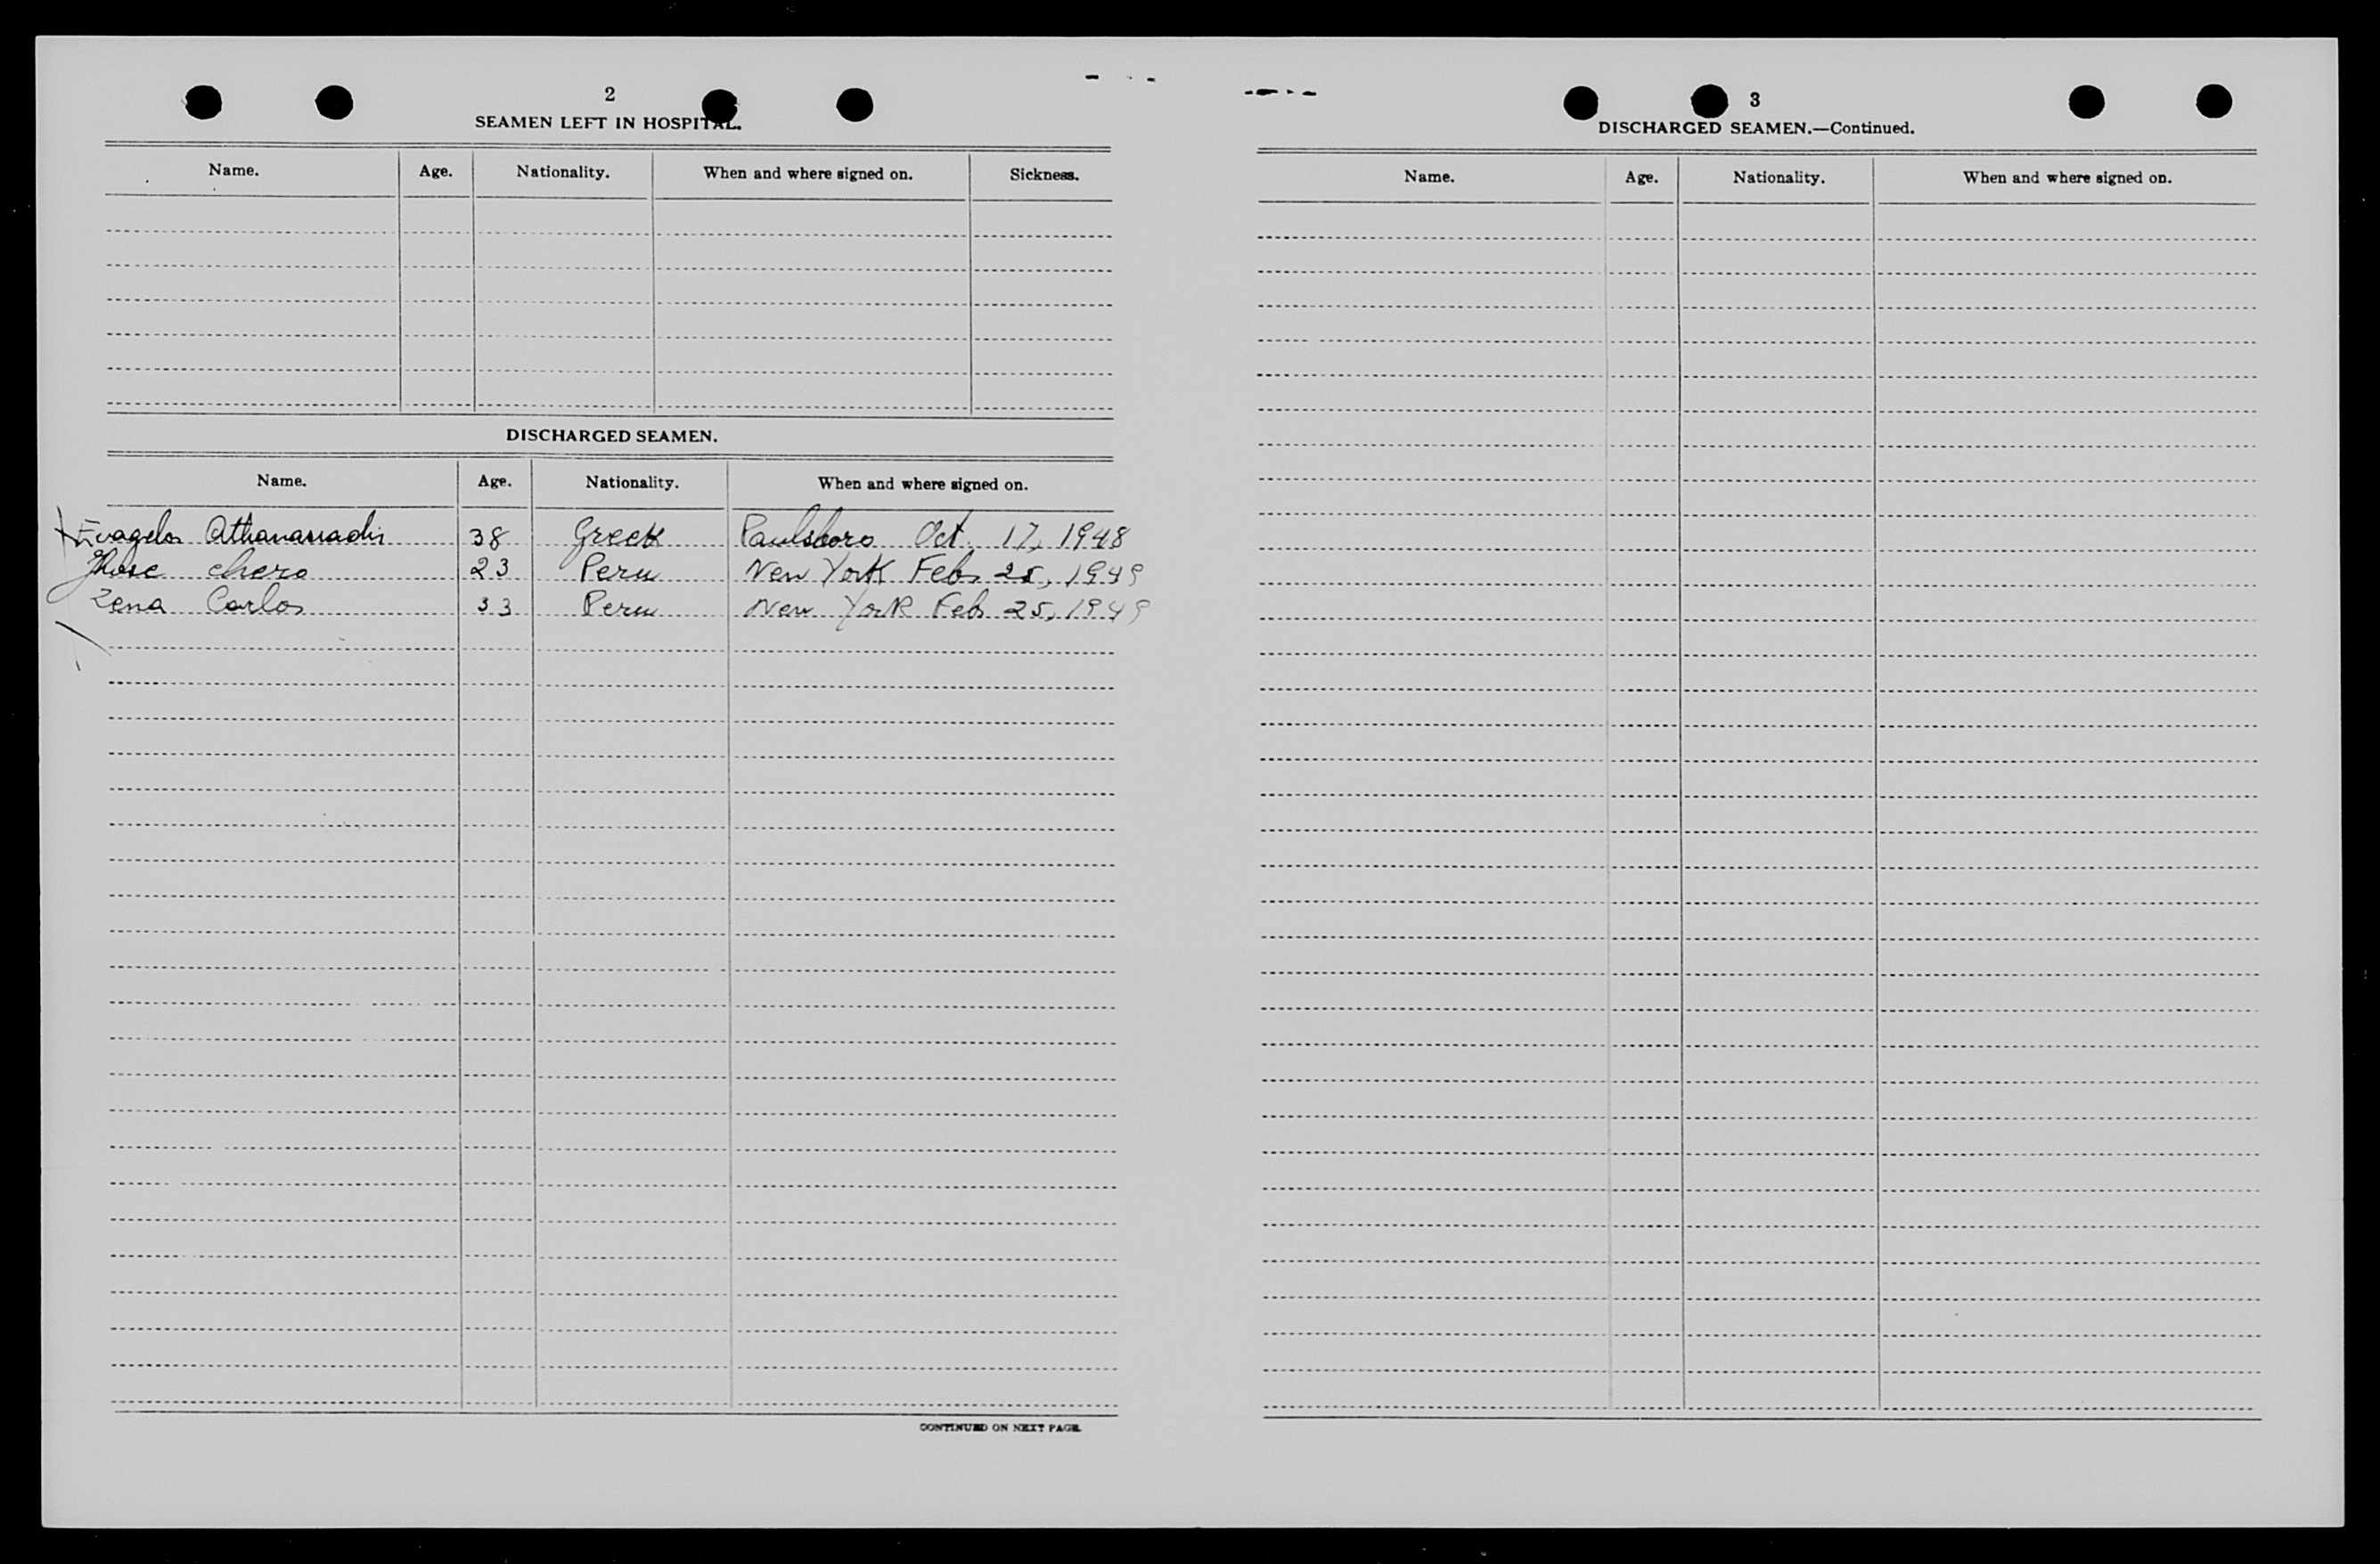 2
SEAMEN LEFT IN HOSPITAL.
Name. Age. Nationality. When and where signed on. Sickness.
DISCHARGED SEAMEN.
Name. Age. Nationality. When and where signed on.
Evagelos Athanassiadis 38 Greek Paulsboro Oct. 17, 1948
Jhose chero 23 Peru New York Feb. 25, 1949
Zena Carlos 33 Peru New York Feb. 25, 1949
CONTINUED ON NEXT PAGE.
3
DISCHARGED SEAMEN.—Continued.
Name. Age. Nationality. When and where signed on.